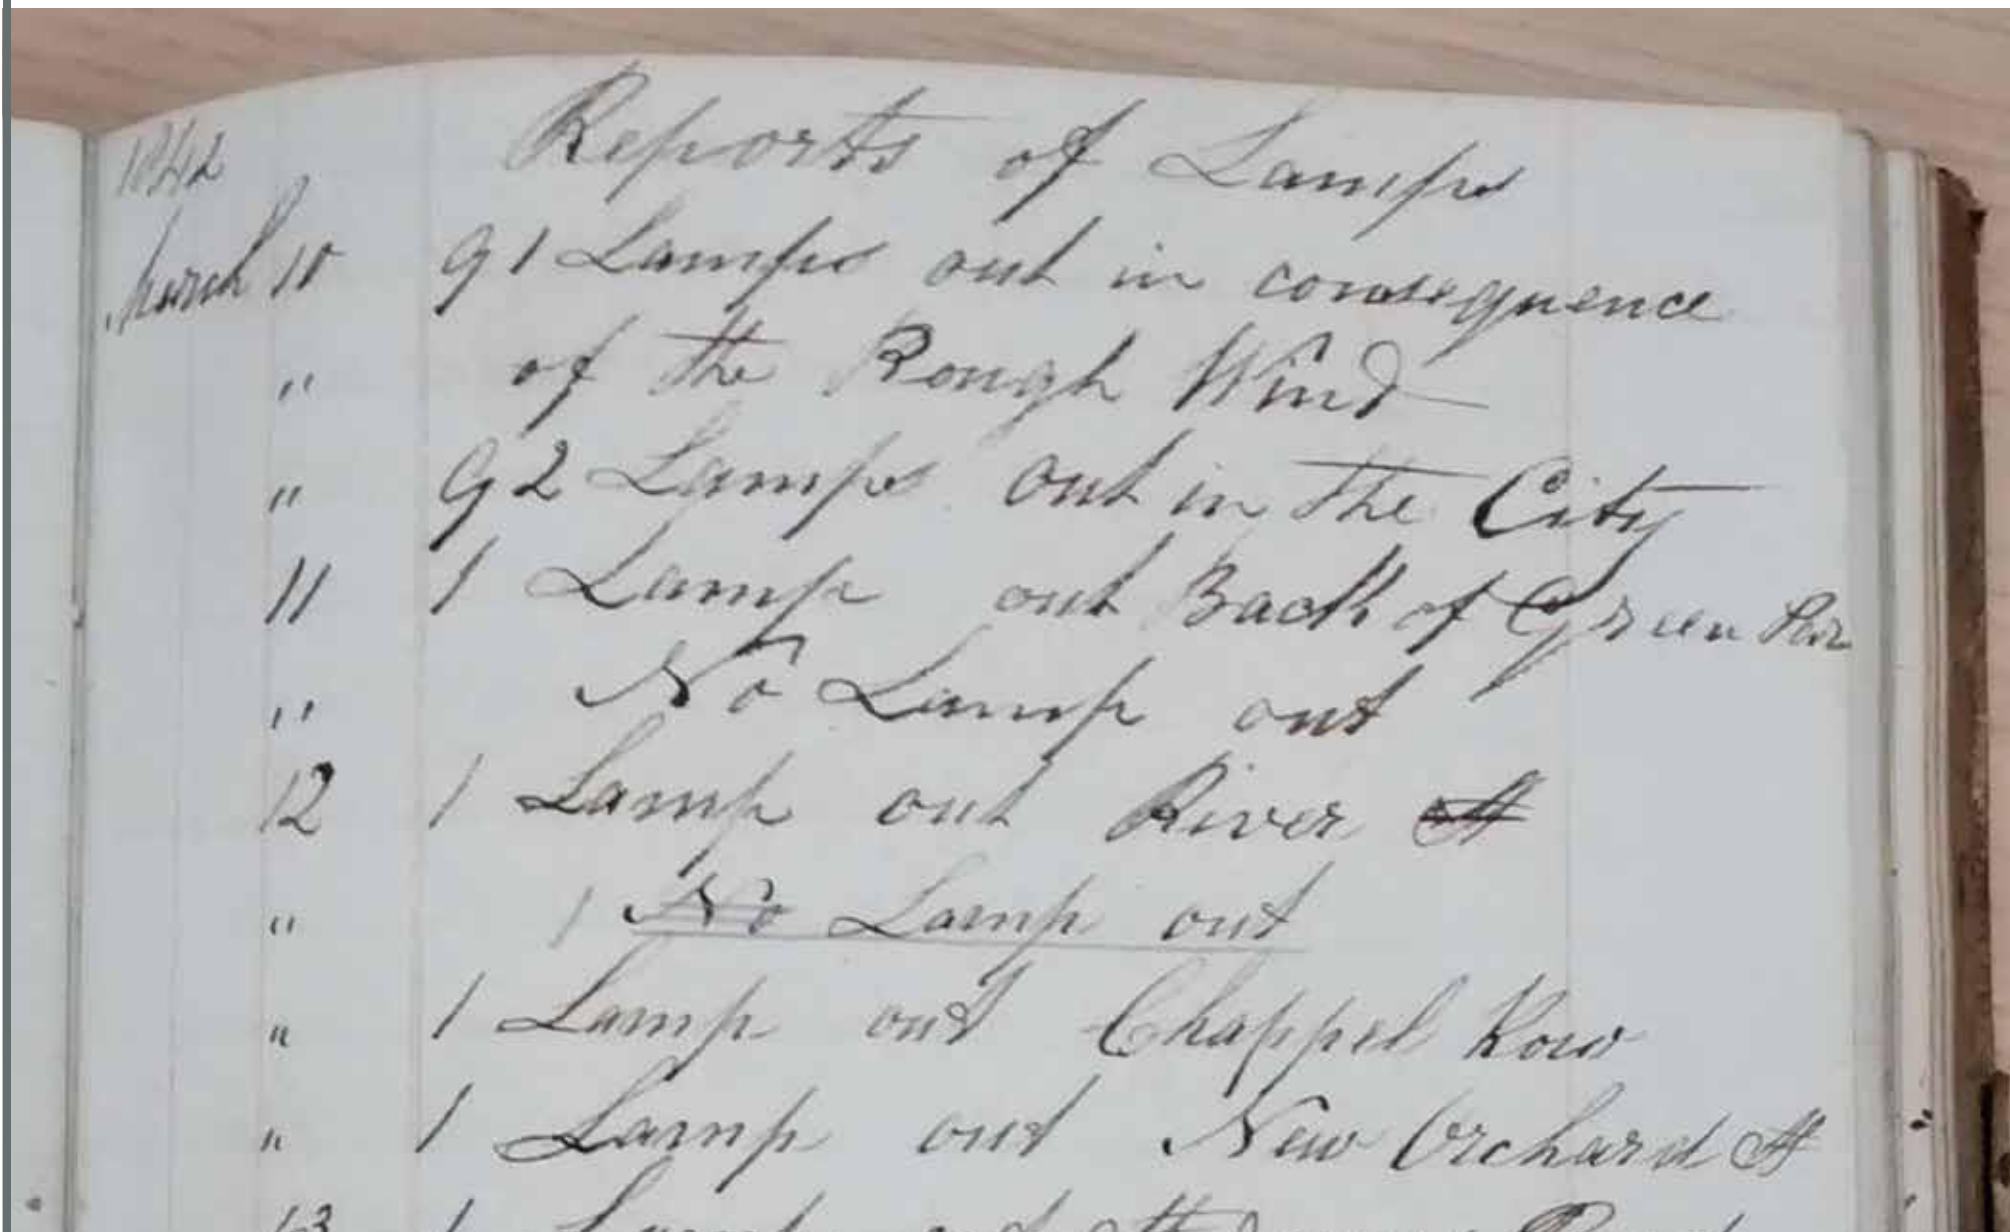 1842 Reports of Lamps
March 10 91 Lamps out in consequence
" of the Rough Wind
" 92 Lamps out in the City
11 1 Lamp out Back of Green Par
" No Lamp out
12 1 Lamp out River St
" 1 No Lamp out
" 1 Lamp out Chappel Row
" 1 Lamp out New Orchard St
13 1 Lamp out